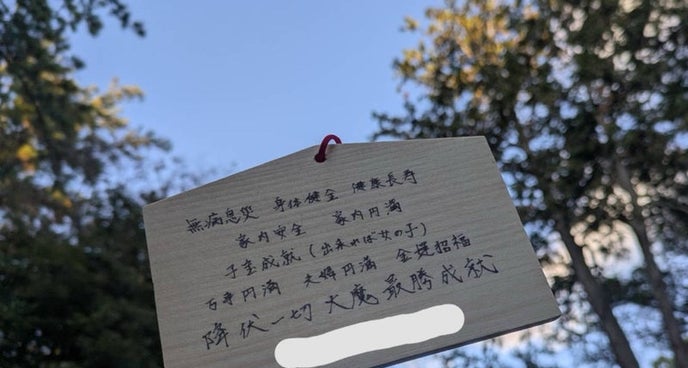 無病息災 身体健全 健康長寿
家内安全 家内円満
子宝成就 (出来れば女の子)
万事円満 夫婦円満 金運招福
降伏一切大魔最勝成就